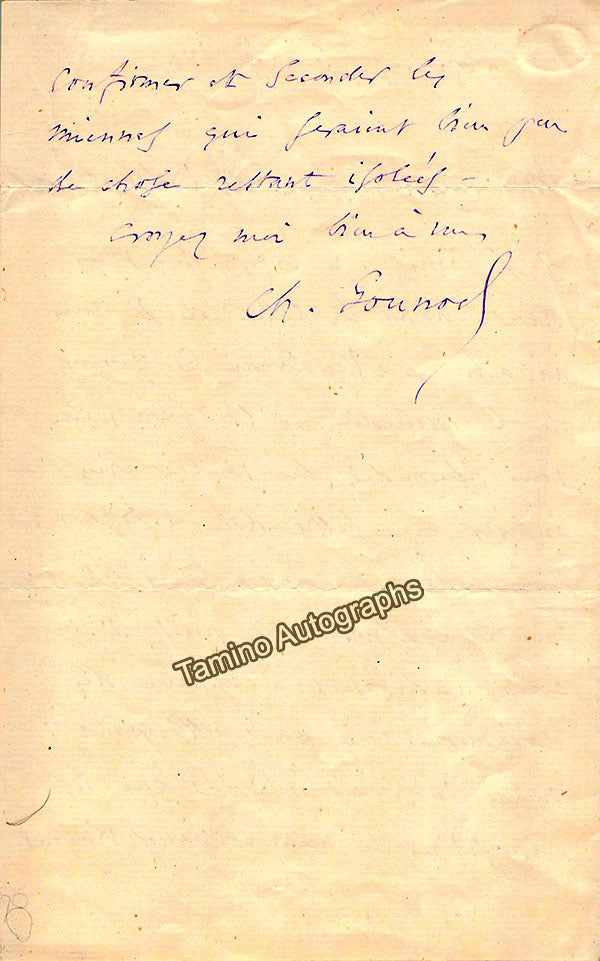 confirmer et seconder les
miennes qui seraient bien peu
de chose restant isolées –
Croyez moi bien à vous
Ch. Gounod
Tamino Autographs